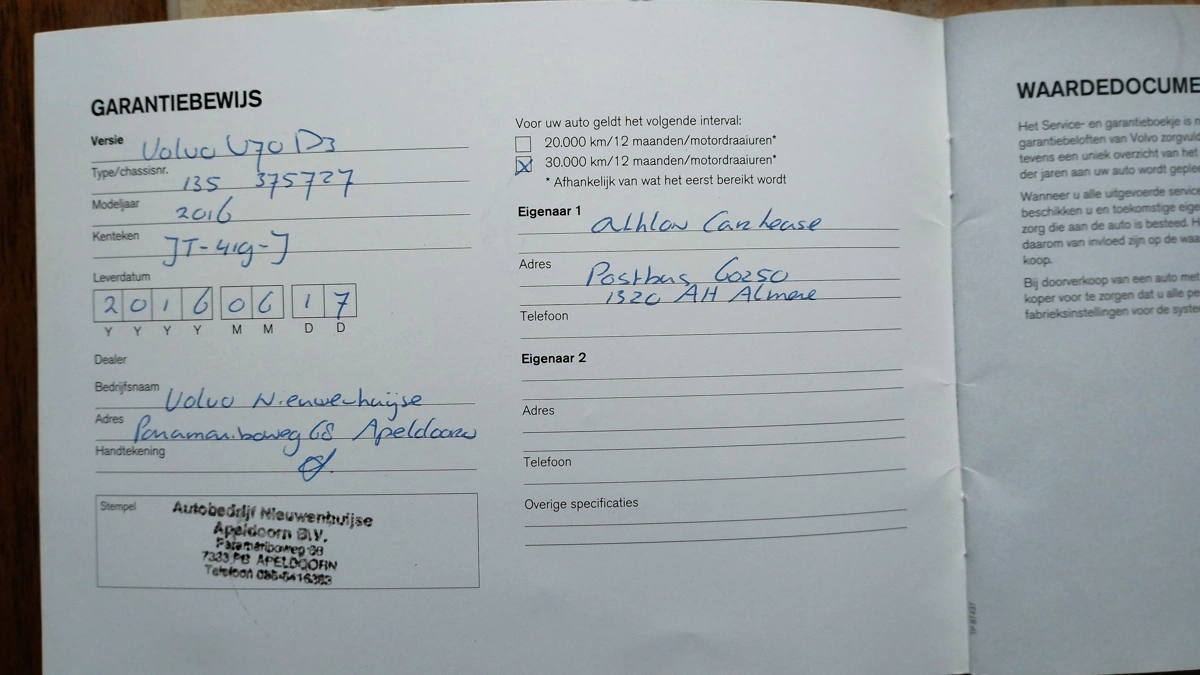 GARANTIEBEWIJS
Versie Volvo V70 D3
Type/chassisnr. 135 375727
Modeljaar 2016
Kenteken JT-419-J
Leverdatum
2016 06 17
Y Y Y Y M M D D
Dealer
Bedrijfsnaam Volvo Nieuwenhuijse
Adres Paramariboweg 68 Apeldoorn
Handtekening
Stempel
Autobedrijf Nieuwenhuijse
Apeldoorn B.V.
Paramariboweg 68
7333 PB APELDOORN
Telefoon
Voor uw auto geldt het volgende interval:
20.000 km/12 maanden/motordraaiuren*
30.000 km/12 maanden/motordraaiuren*
* Afhankelijk van wat het eerst bereikt wordt
Eigenaar 1 Athlon Car Lease
Adres Postbus 60250
1320 AH Almere
Telefoon
Eigenaar 2
Adres
Telefoon
Overige specificaties
WAARDEDOCUME
Het Service- en garantieboekje is
garantiebeloften van Volvo zorgvuld
tevens een uniek overzicht van het
der jaren aan uw auto wordt geplee
Wanneer u alle uitgevoerde service
beschikken u en toekomstige eige
zorg die aan de auto is besteed. H
daarom van invloed zijn op de waa
koop.
Bij doorverkoop van een auto met
koper voor te zorgen dat u alle pe
fabrieksinstellingen voor de syste